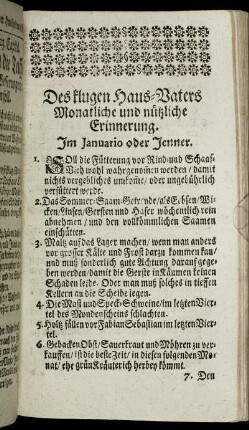 Des klugen Haus-Vaters
Monatliche und nützliche
Erinnerung.
Im Januario oder Jenner.
1. SOll die Fütterung vor Rind- und Schaaf-
Vieh wohl wahrgenommen werden / damit
nichts vergebliches umkome / oder ungebührlich
verfüttert werde.
2. Das Sommer-Saam-Getreyde / als Erbsen / Wi-
cken / Linsen / Gersten und Hafer wöchentlich rein
abnehmen / und den vollkömmlichen Saamen
einschütten.
3. Maltz auf das Lager machen / wenn man anders
vor grosser Kälte und Frost darzu kommen kan /
und muß sonderlich gute Achtung darauf gege-
ben werden / damit die Gerste im Käumen keinen
Schaden leide. Oder man muß solches in tieffen
Kellern an die Scheibe legen.
4. Die Mast und Speck-Schweine / im letzten Vier-
tel des Mondenscheins schlachten.
5. Holtz fällen vor Fabian Sebastian im letzten Vier-
tel.
6. Gebacken Obst / Sauerkraut und Möhren zu ver-
kauffen / ist die beste Zeit / in diesen folgenden Mo-
nat / ehe grün Kräuterich herbey kömmt.
7. Den